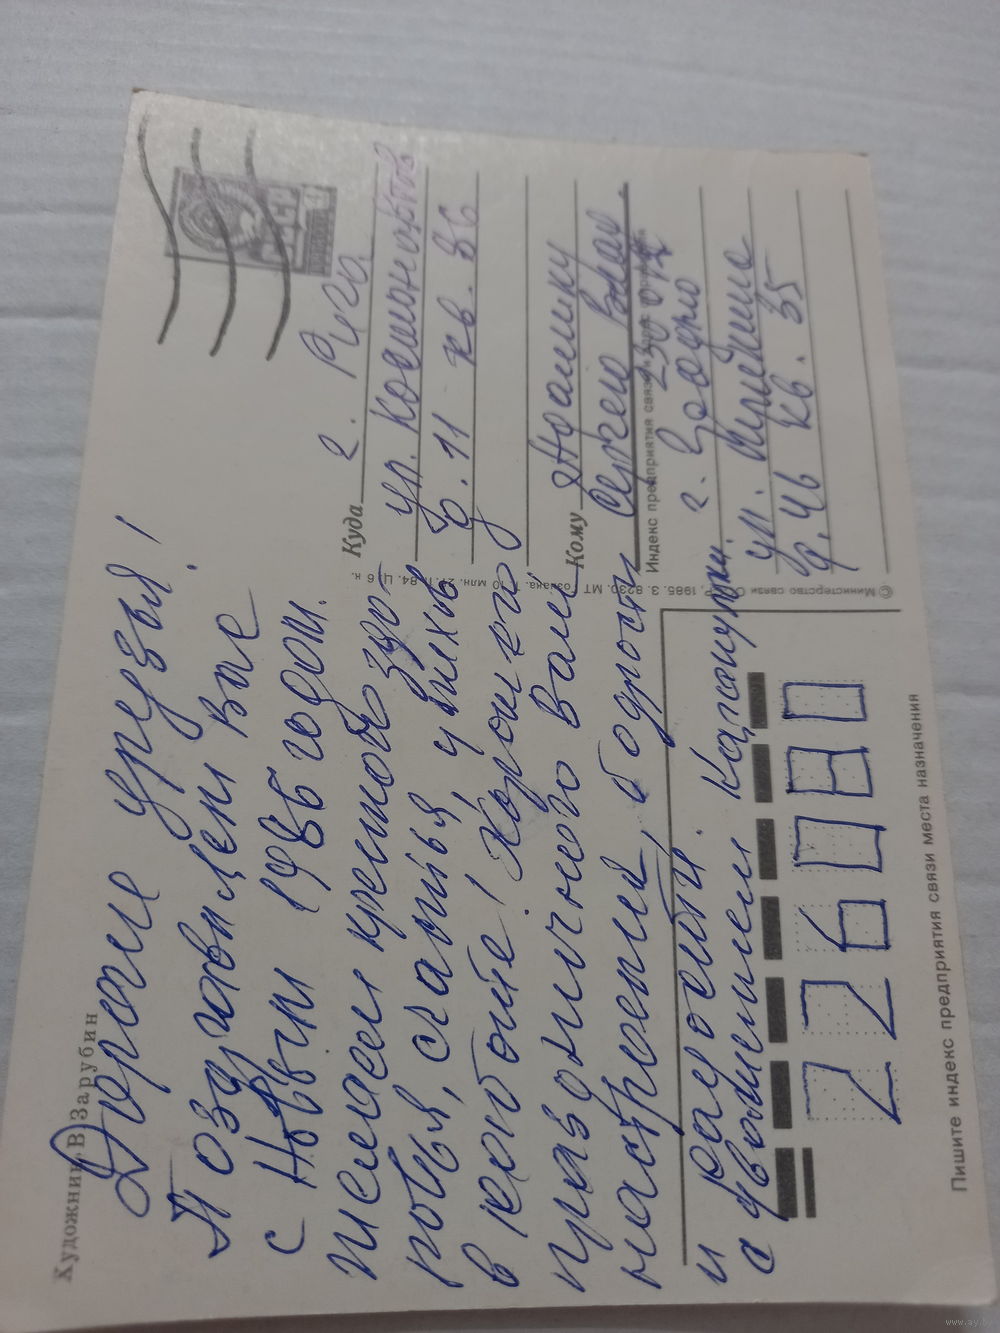 Художник В. Зарубин
Дорогие друзья!
Поздравляем Вас
с Новым 1986 годом.
Желаем крепкого здо-
ровья, счастья, успехов
в работе! Хорошего
праздничного Вам
настроения, бодрости
и радости.
с уважением
Куда г. Рига
ул. Космонавтов
д. 11 кв. 36
Кому
Сергею
Индекс предприятия связи и адрес отправителя
г. Гродно
ул.
д. 46 кв. 35
© Министерство связи СССР, 1985. З. 8230. МТ Гознака. 10 млн. 27.11.84. Ц. 6 к.
226080
Пишите индекс предприятия связи места назначения
www.ay.by